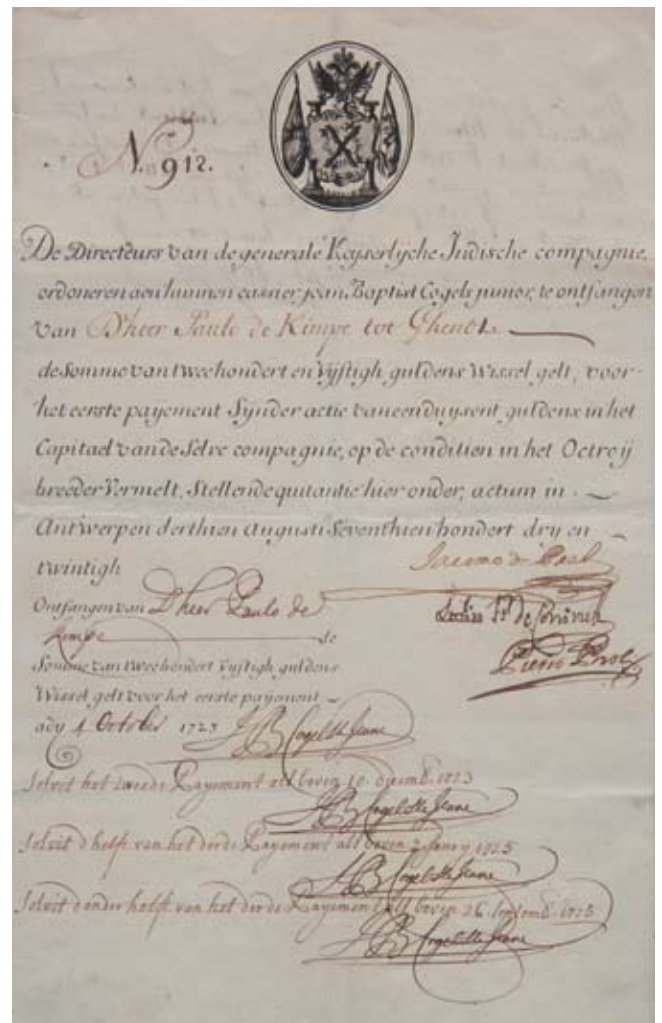 N. 912.
De Directeurs van de generale Keyserlycke Indische compagnie,
ordoneren aen hunnen cassier jean Baptist Cogels junior, te ontfangen
van D'heer Paulo de Kimpe tot Ghendt
de Somme van tweehondert en Vyftigh guldens Wissel gelt, voor
het eerste payement Synder actie van eenduysent guldens in het
Capitael van de Selve compagnie, op de condition in het Octroij
breeder Vermelt, Stellende quitantie hier onder, actum in
Antwerpen derthien Augusti Seventhien hondert dry en
twintigh
Jacomo de Pret
Ontfangen van D'heer Paulo de
Kimpe de
Somme van tweehondert Vyftigh guldens
Pietro Proli
Wissel gelt voor het eerste payement
ady 4 October 1723 J B Cogels le Jeune
Solvit het tweede Payement als boven 10 decemb. 1723
J B Cogels le Jeune
Solvit d'helft van het derde Payement als boven 2 January 1725
J B Cogels le Jeune
Solvit d'ander helft van het derde Payement als boven 26 Septemb. 1725
J B Cogels le Jeune